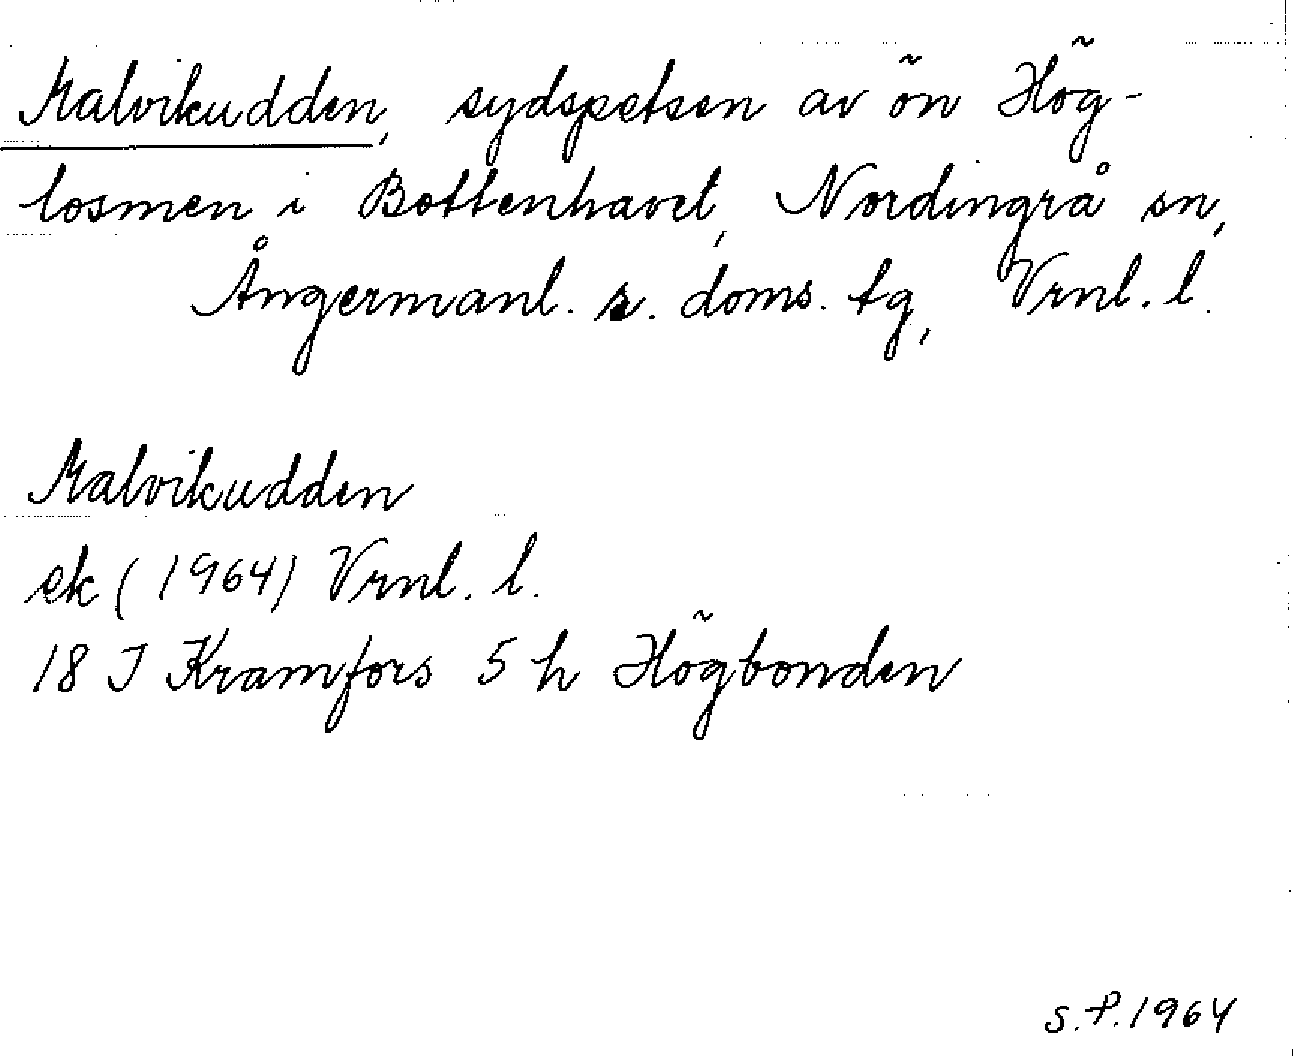 Malvikudden, sydspetsen av ön Hög-
losmen i Bottenhavet, Nordingrå sn,
Ångermanl. s. doms. tg, Vrnl. l.
Malvikudden
ek (1964) Vrnl. l.
18 J Kramfors 5 h Högbonden
S.P. 1964